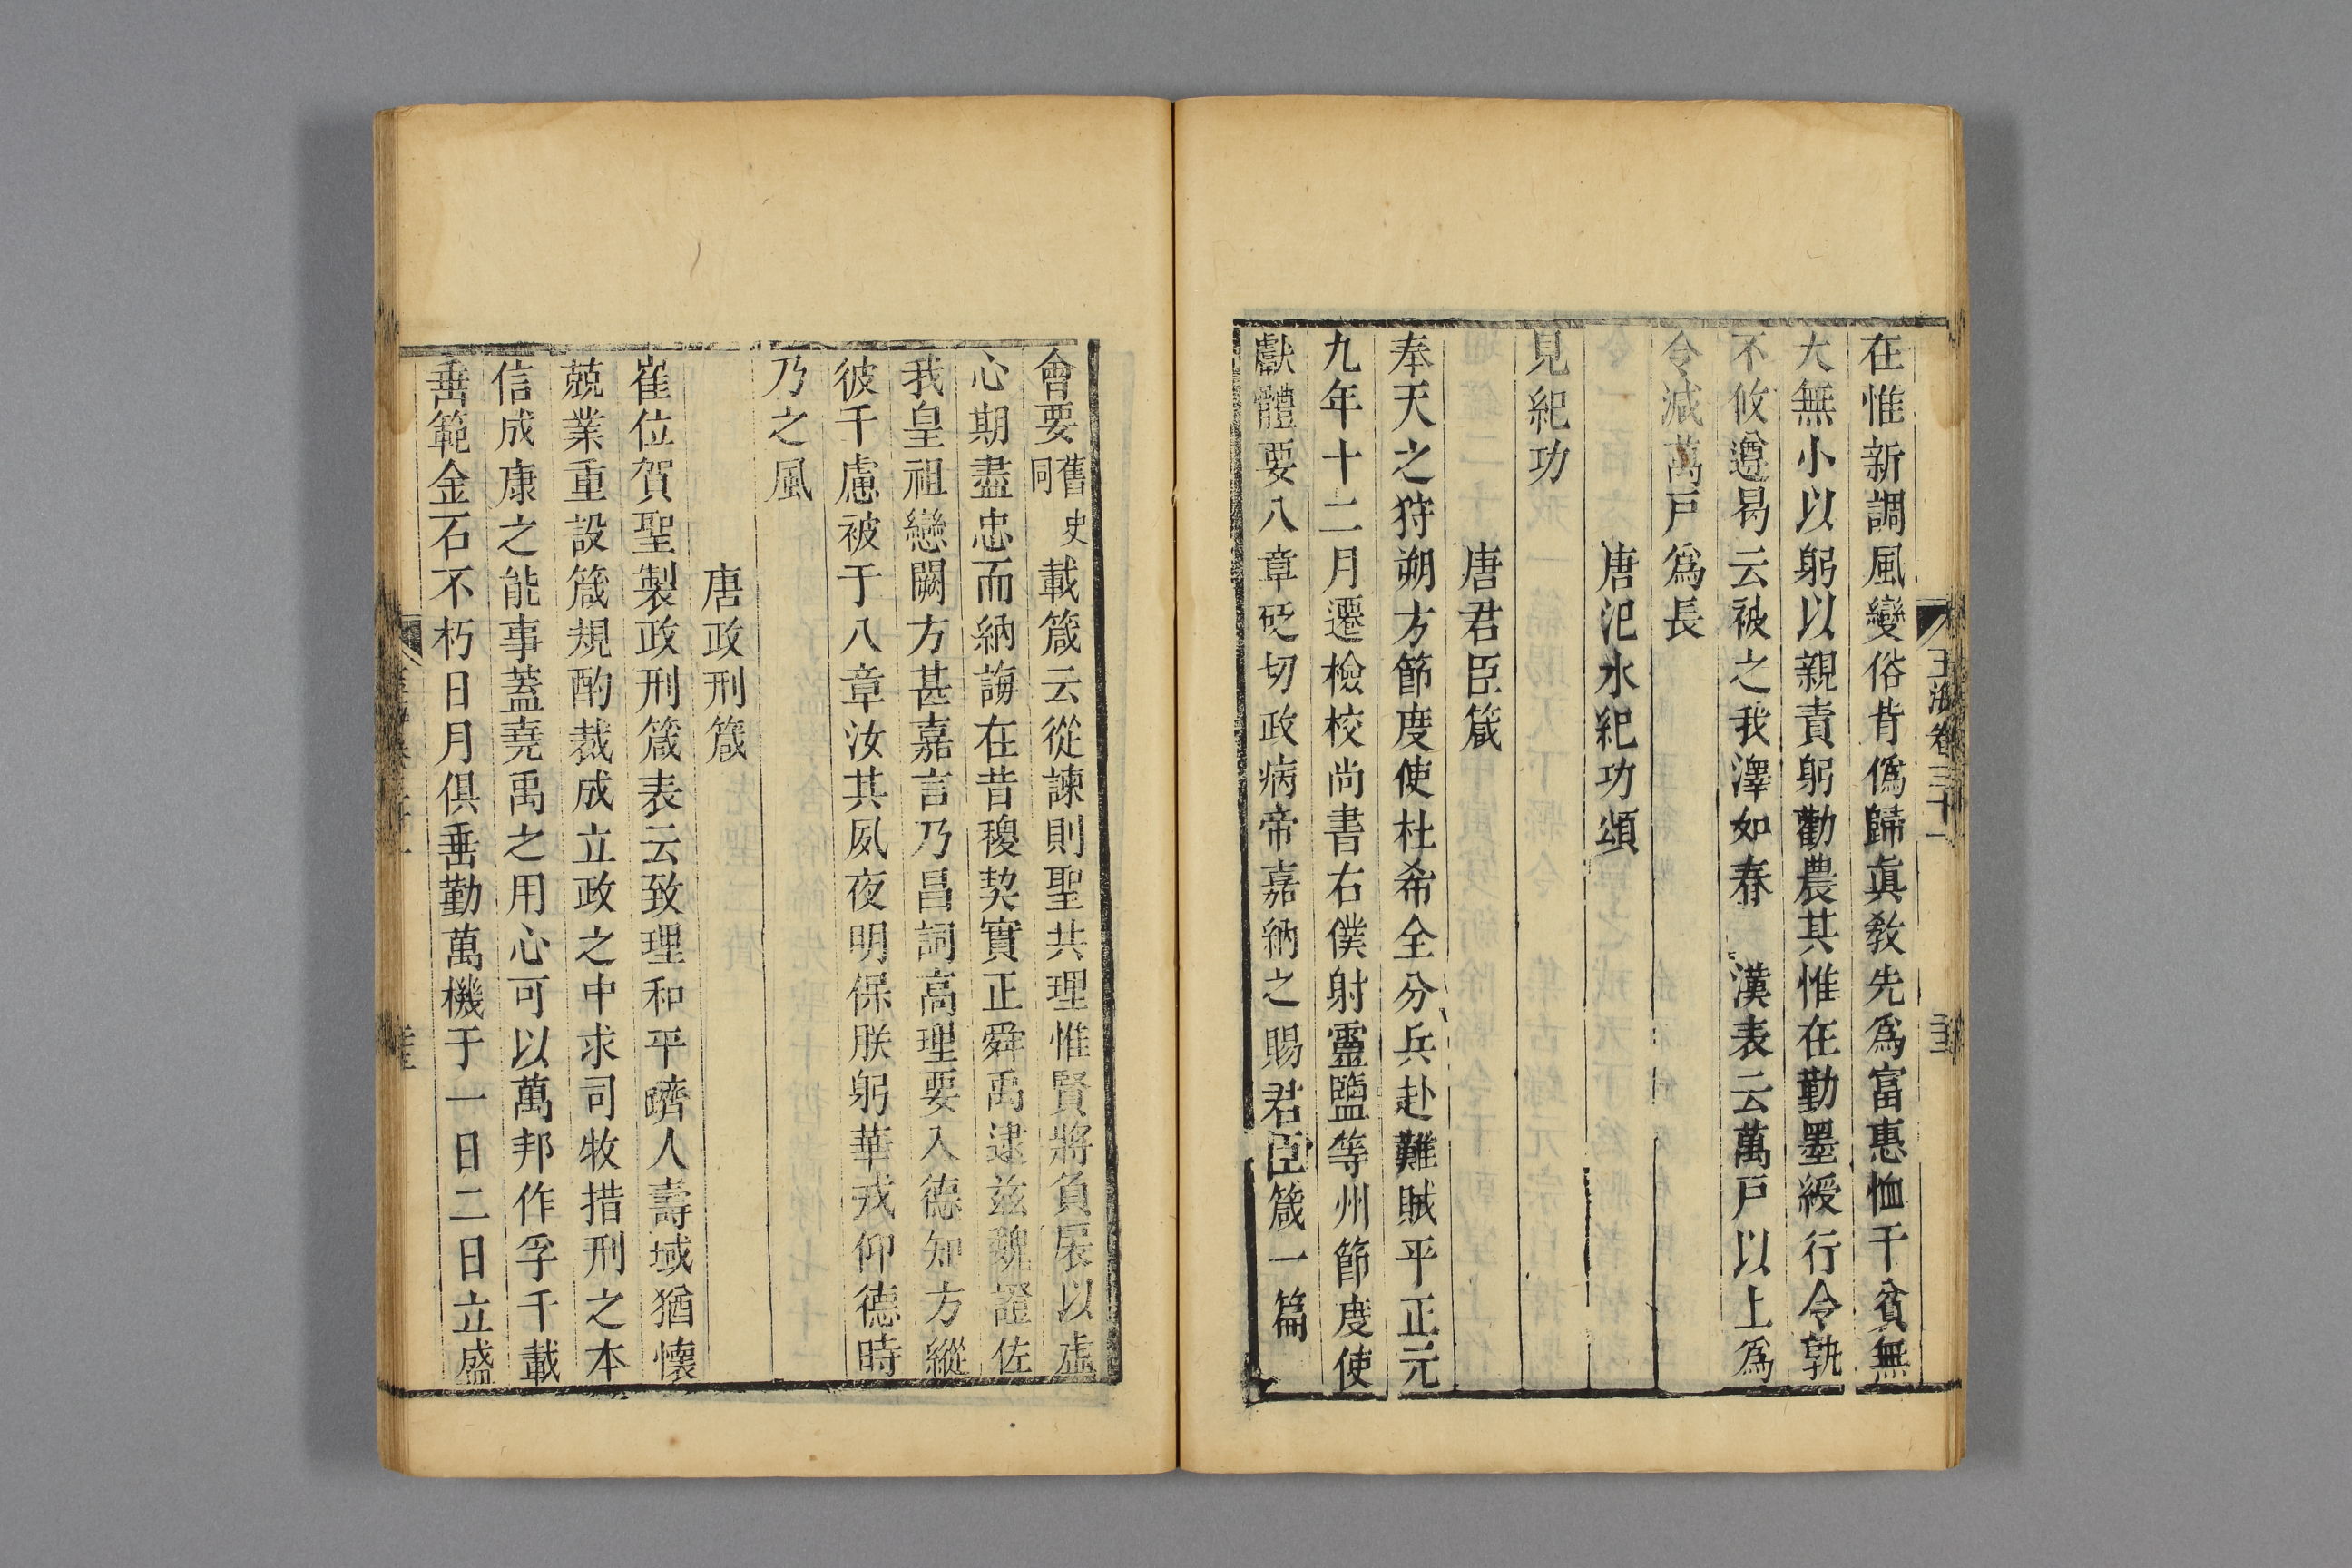 在惟新調風變俗背僞歸眞敎先爲富惠恤干貧無
大無小以躬以親責躬勸農其惟在勤墨綬行令孰
不攸遵曷云被之我澤如春　漢表云萬戸以上爲
令減萬戸爲長
唐汜水紀功頌
見紀功
唐君臣箴
奉天之狩朔方節度使杜希全分兵赴難賊平正元
九年十二月遷檢校尚書右僕射靈鹽等州節度使
獻體要八章砭切政病帝嘉納之賜君臣箴一篇
玉海卷三十一
會要舊史同載箴云從諫則聖共理惟賢將負扆以虛
心期盡忠而納誨在昔稷契實正舜禹逮兹魏證佐
我皇祖戀闕方甚嘉言乃昌詞高理要入德知方縱
彼千慮被于八章汝其夙夜明保朕躬華戎仰德時
乃之風
唐政刑箴
崔位賀聖製政刑箴表云致理和平躋人壽域猶懷
兢業重設箴規酌裁成立政之中求司牧措刑之本
信成康之能事蓋堯禹之用心可以萬邦作孚千載
垂範金石不朽日月俱垂勤萬機于一日二日立盛